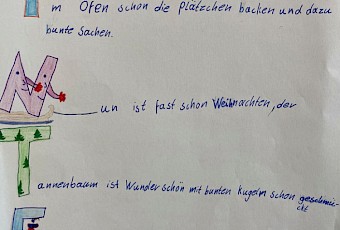 Im Ofen schon die Plätzchen backen und dazu
bunte Sachen.
Nun ist fast schon Weihnachten, der
Tannenbaum ist Wunder schön mit bunten Kugeln schon geschmü-
ckt